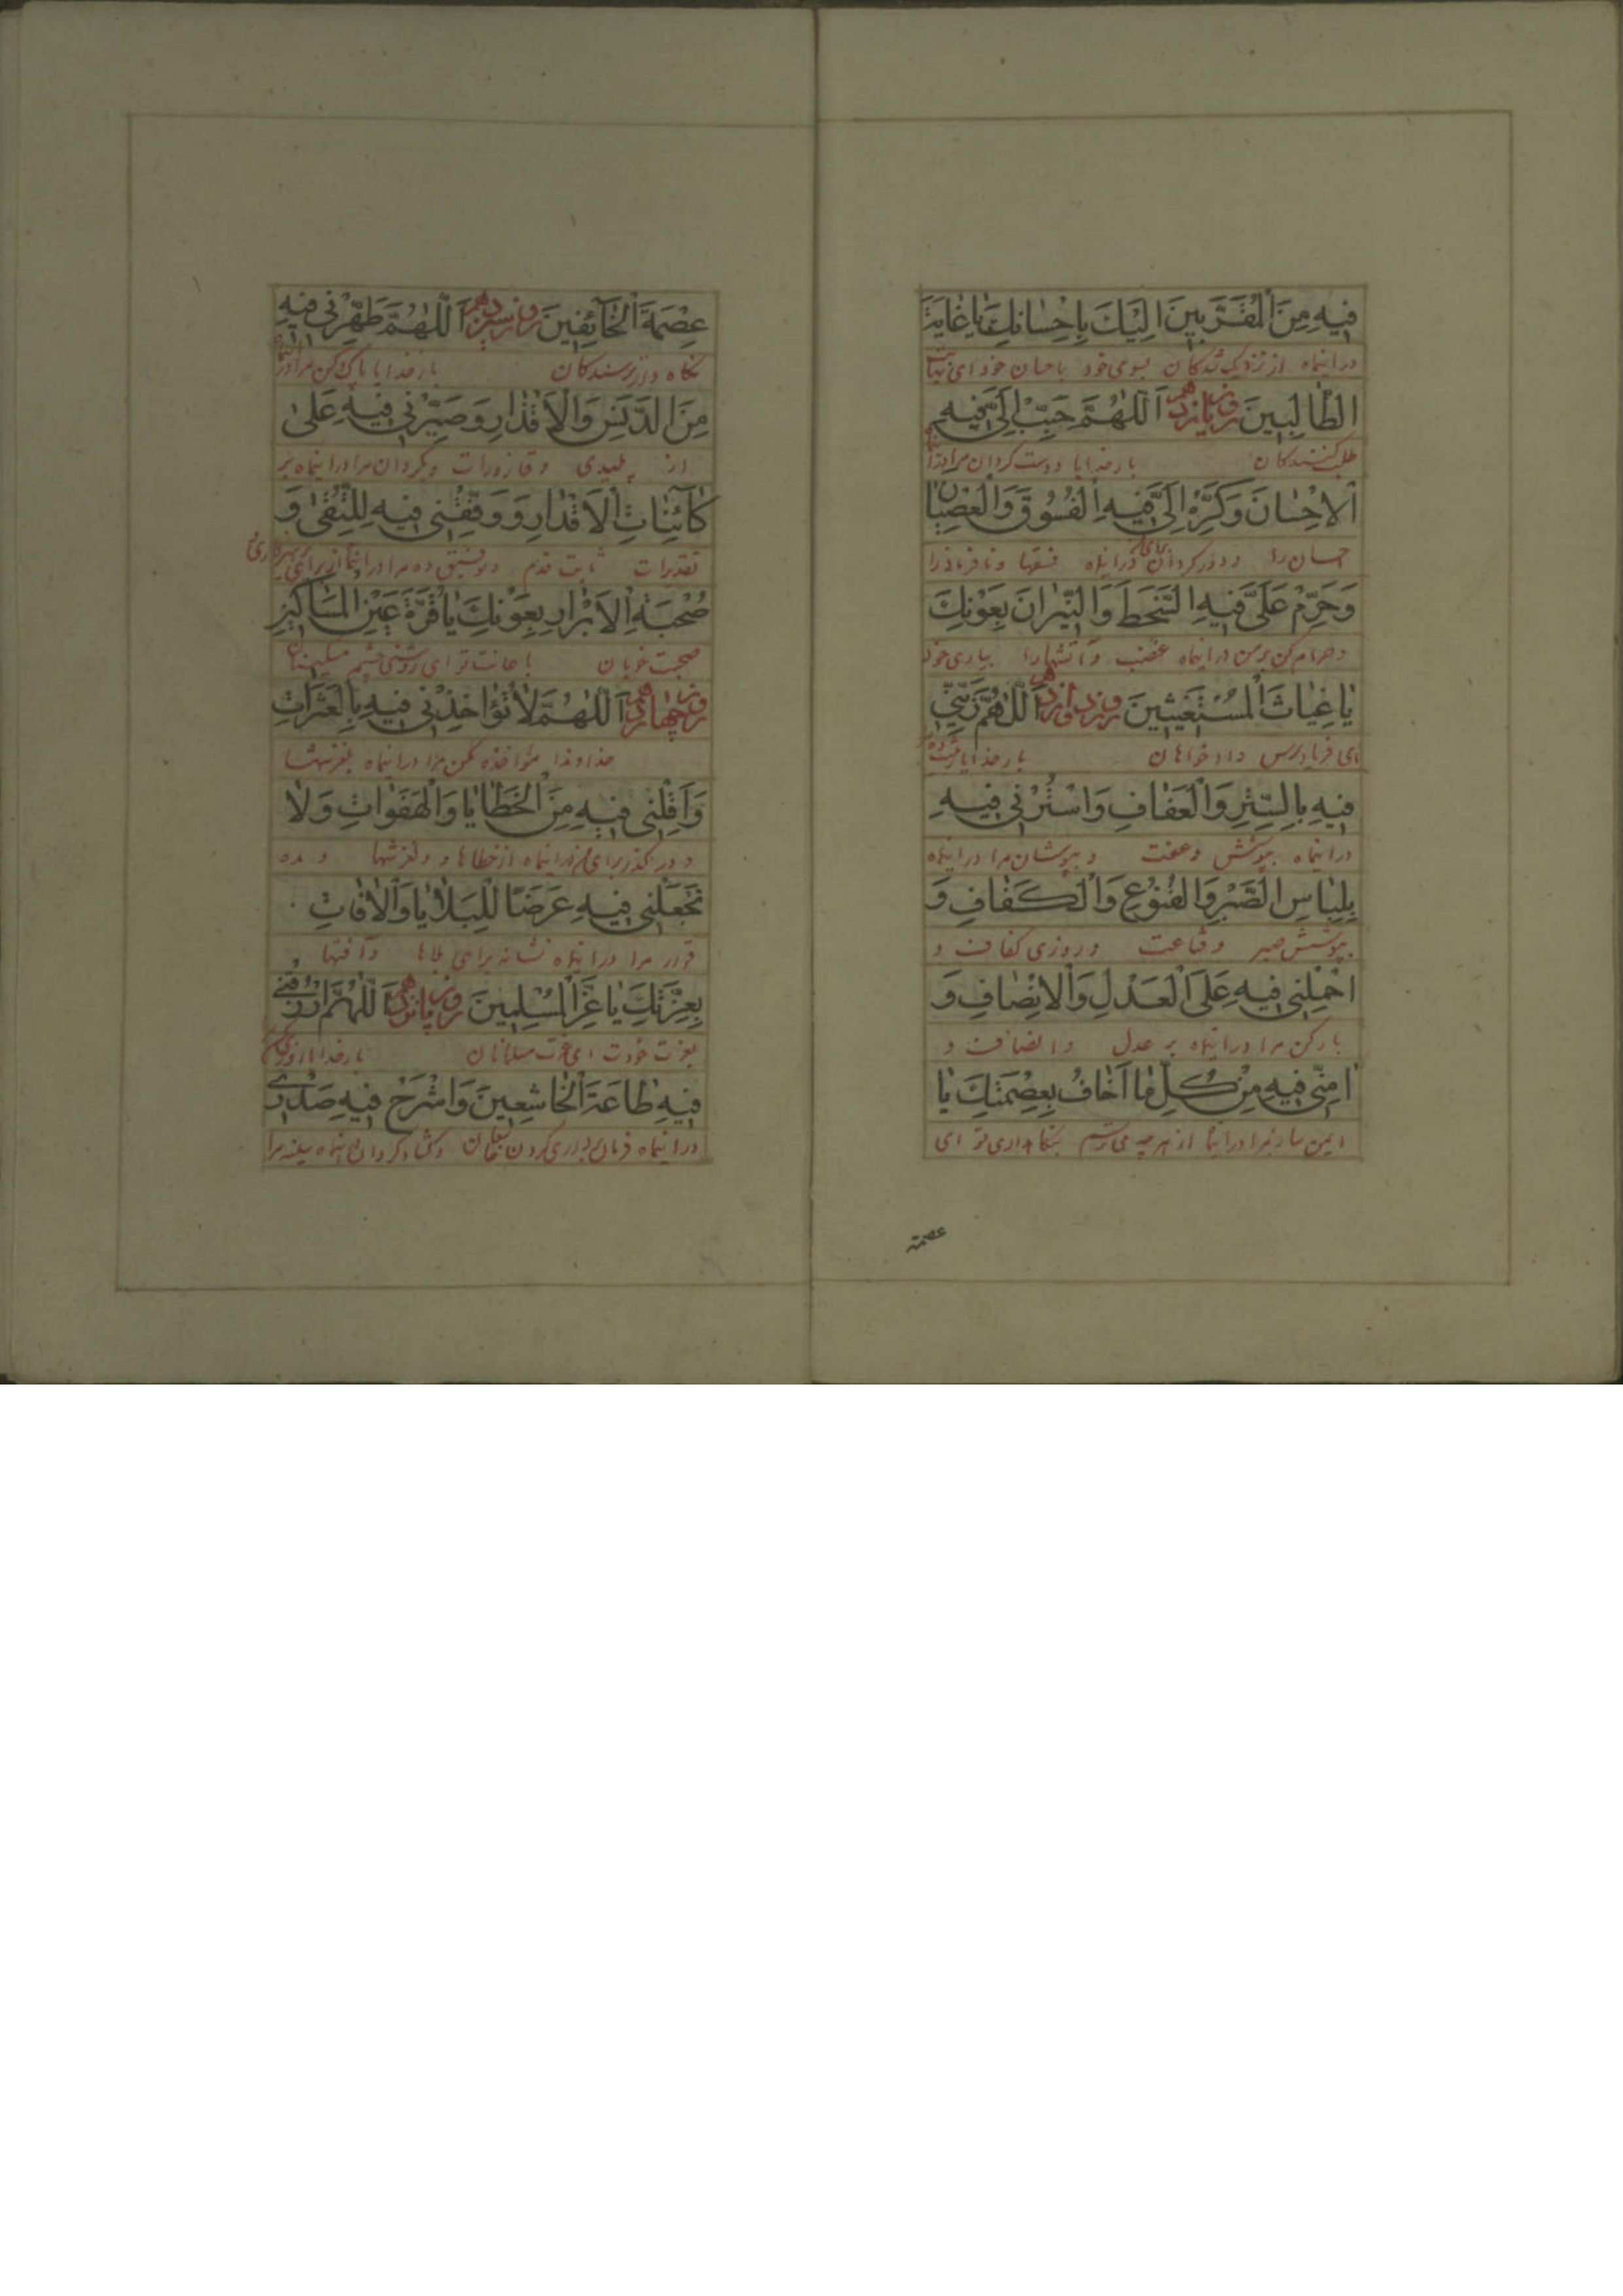 فِيهِ مِنَ الْمُقَرَّبِينَ اِلَيْكَ بِاِحْسٰانِكَ يٰا غٰايَةَ
دراینماه از نزدیک شدکان بسوی خود باحسان خود ای نهایت
الطّٰالِبِينَ روز یازدهم اَللّٰهُمَّ حَبِّبْ اِلَىَّ فِيهِ
طلب کنندکان بارخدایا دوست کردان مرا
الْاِحْسٰانَ وَكَرِّهْ اِلَىَّ فِيهِ الْفُسُوقَ وَالْعِصْيٰانَ
احسان را و دور کردان دراینماه فسقها و نافرمانی را
وَحَرِّمْ عَلَىَّ فِيهِ السَّخَطَ وَالنّيرٰانَ بِعَوْنِكَ
و حرام کن بر من دراینماه غضب و آتشها را بیاری خود
يٰا غِيٰاثَ الْمُسْتَغيثينَ روز دوازدهم اَللّٰهُمَّ زَيِّنّى
ای فریادرس دادخواهان بارخدایا زینت ده
فِيهِ بِالسِّتْرِ وَالْعَفٰافِ وَاسْتُرْنى فِيهِ
دراینماه بپوشش و عفت و بپوشان مرا دراینماه
بِلِبٰاسِ الصَّبْرِ وَالْقُنُوعِ وَالْكَفٰافِ وَ
بپوشش صبر و قناعت و روزی کفاف و
احْمِلْنى فِيهِ عَلَى الْعَدْلِ وَالْاِنْصٰافِ وَ
بار کن مرا دراینماه بر عدل و انصاف و
اٰمِنّى فِيهِ مِنْ كُلِّ مٰا اَخٰافُ بِعِصْمَتِكَ يٰا
ایمن ساز مرا دراینماه از هر چه می ترسم بنکاهداری تو ای
عصمة
عِصْمَةَ الْخٰآئِفينَ روز سیزدهم اَللّٰهُمَّ طَهِّرْنى فِيهِ
نکاه دار ترسندکان بارخدایا پاک کن مرا
مِنَ الدَّنَسِ وَالْاَقْذٰارِ وَصَبِّرْنى فِيهِ عَلىٰ
از پلیدی و قازورات و بکردان مرا دراینماه بر
كٰآئِنٰاتِ الْاَقْدٰارِ وَ وَفِّقْنى فِيهِ لِلتُّقىٰ وَ
تقدیرات ثابت قدم و توفیق ده مرا دراینماه از برای پرهیزکاری و
صُحْبَةِ الْاَبْرٰارِ بِعَوْنِكَ يٰا قُرَّةَ عَيْنِ الْمَسٰاكينِ
صحبت خوبان باعانت تو ای روشنی چشم مسکینان
روز چهاردهم اَللّٰهُمَّ لٰا تُؤٰاخِذْنى فِيهِ بِالْعَثَرٰاتِ
خداوندا مؤاخذه مکن مرا دراینماه بلغزشها
وَاَقِلْنى فِيهِ مِنَ الْخَطٰايٰا وَالْهَفَوٰاتِ وَلٰا
و درکذر برای من دراینماه از خطاها و لغزشها و مده
تَجْعَلْنى فِيهِ غَرَضًا لِلْبَلٰايٰا وَالْاٰفٰاتِ
قرار مرا دراینماه نشانه برای بلاها و آفتها
بِعِزَّتِكَ يٰا عِزَّ الْمُسْلِمينَ روز پانزدهم اَللّٰهُمَّ ارْزُقْنى
بعزت خودت ای عزت مسلمانان بارخدایا روزی کن
فِيهِ طٰاعَةَ الْخٰاشِعينَ وَاشْرَحْ فِيهِ صَدْرى
دراینماه فرمان برداری کردن و کشاد کردان دراینماه سینه مرا